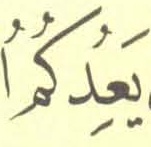 يَعِدُكُمُ